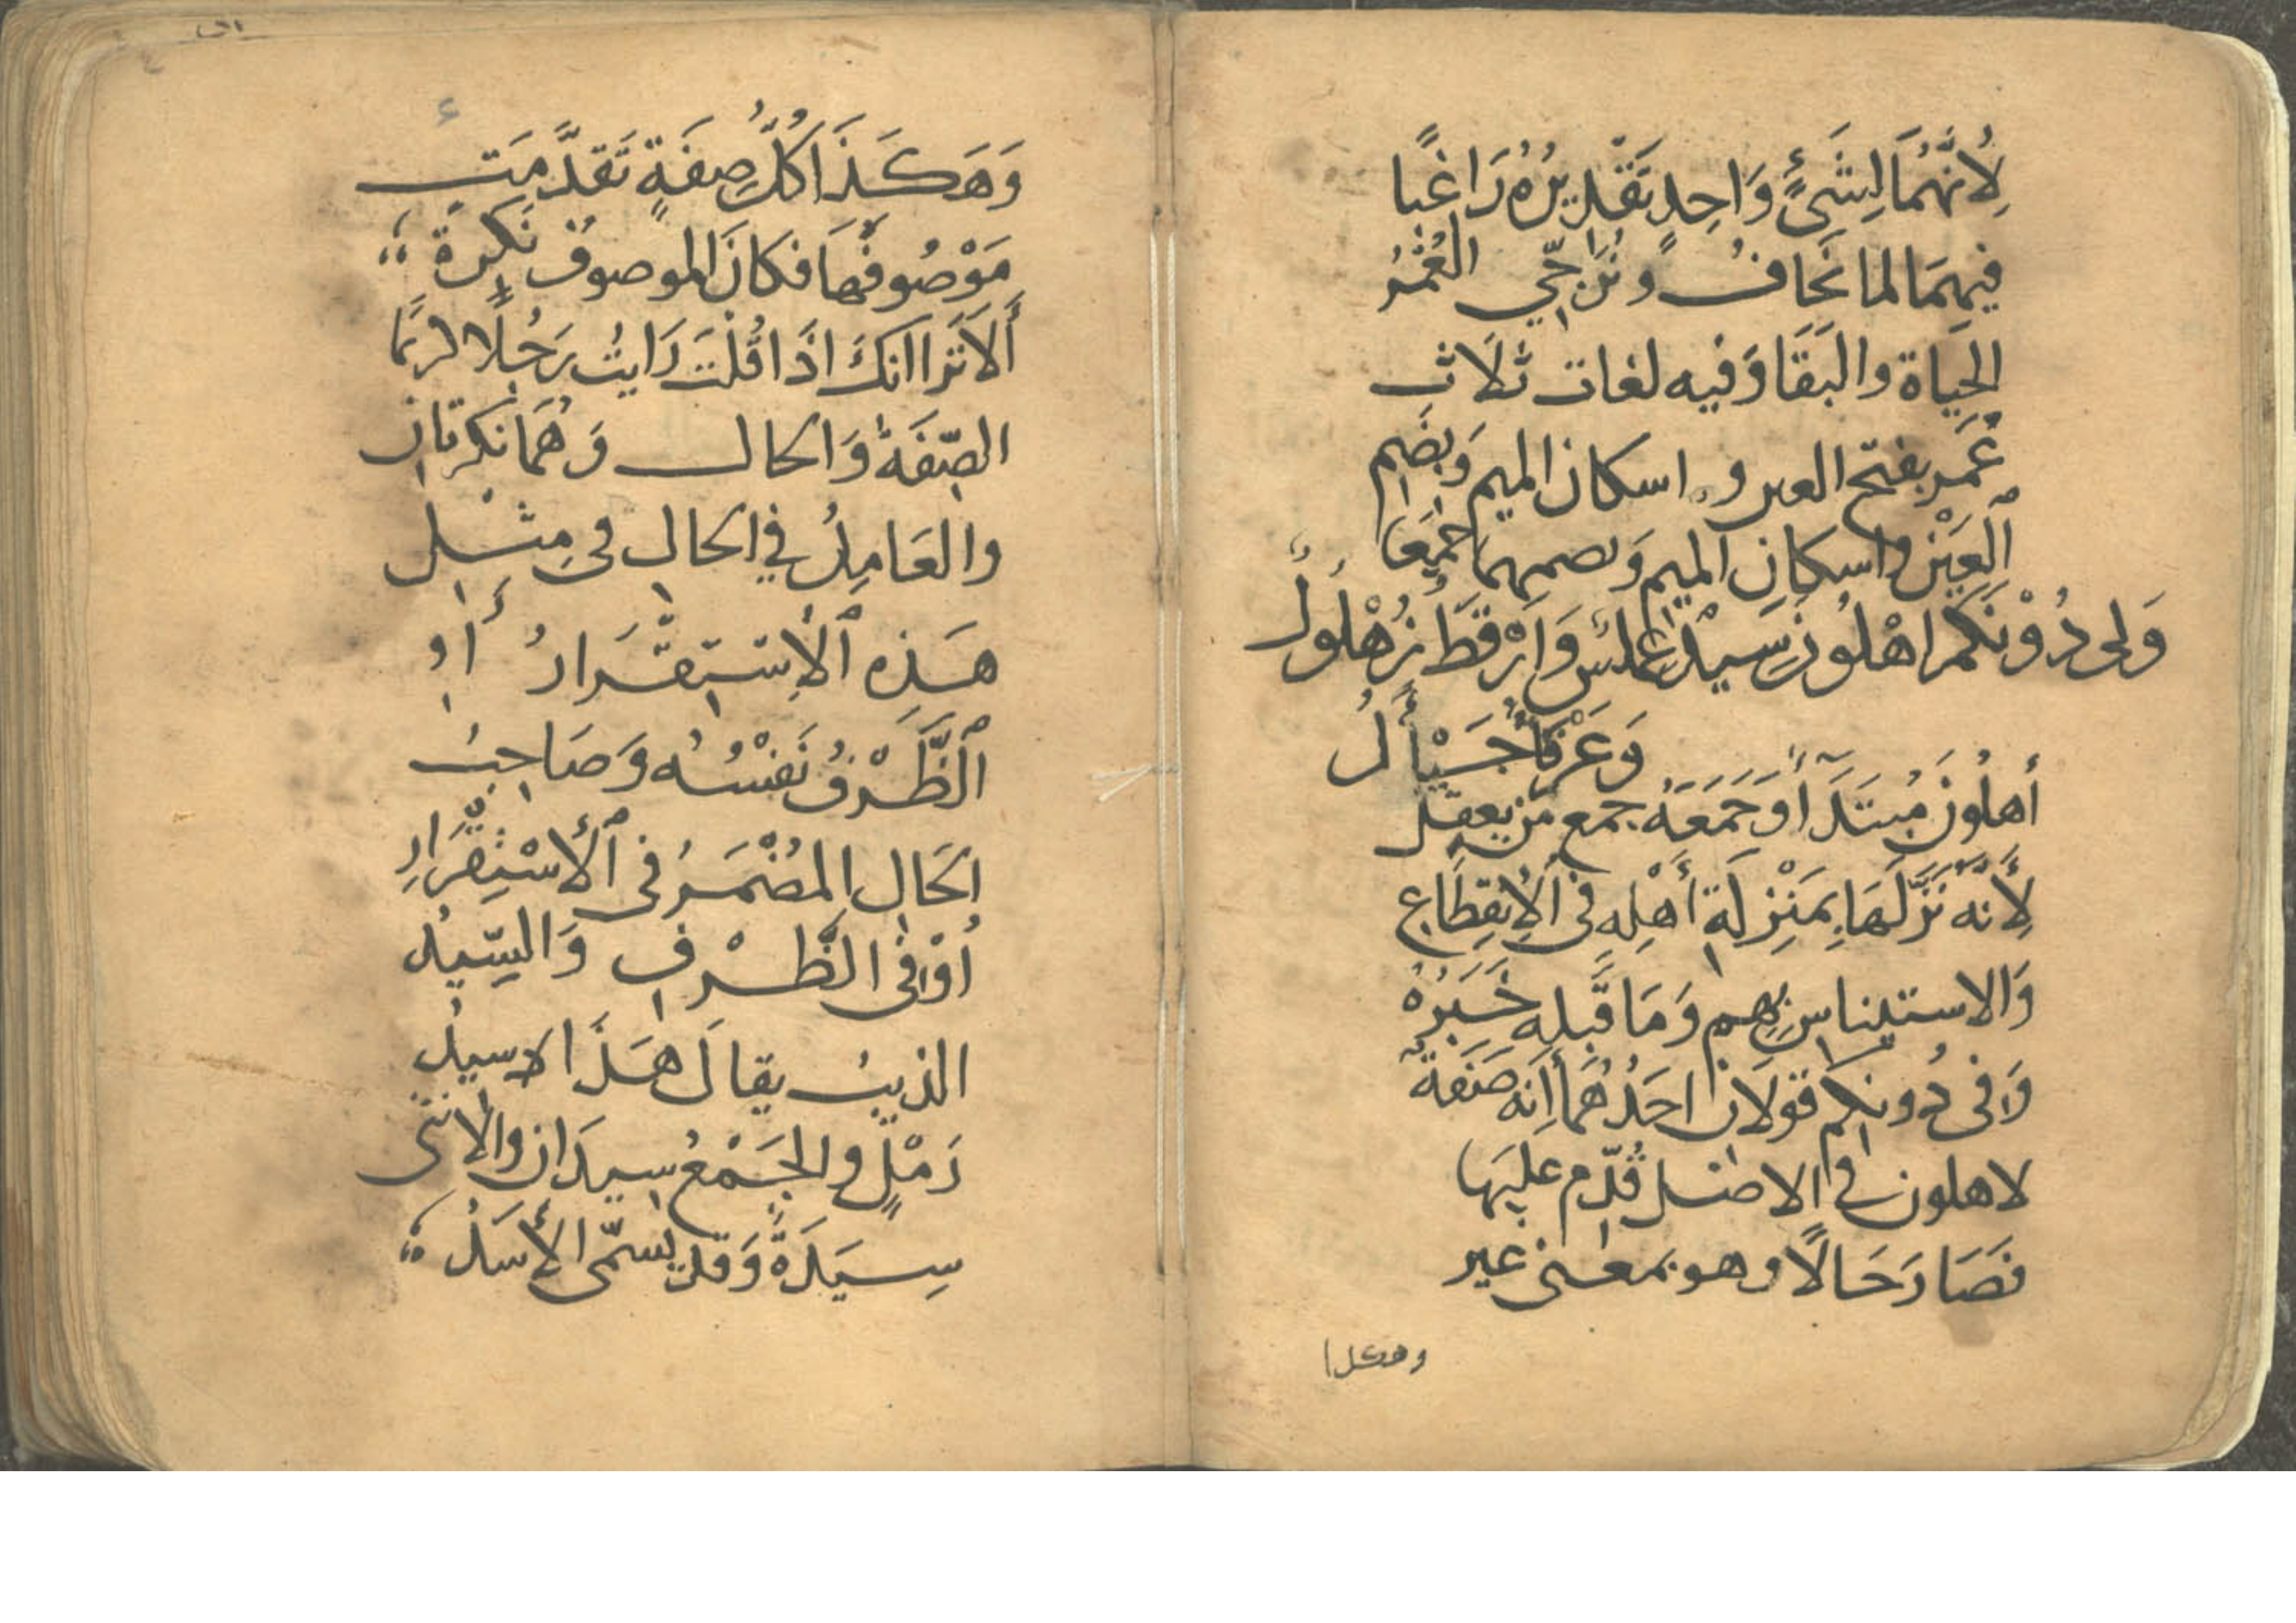 لِأنَّهُمَا لِشَيْءٍ وَاحِدٍ تَقْدِيرُهُ رَاغِبًا
فِيهِمَا لما نخَافُ ونُرَاجِّي العُمْرُ
الحَيَاة والبَقَا وَفيه لغات ثَلَاث
عَمْر بفتح العين واسكان الميم وَبِضَم
ٱلعَيْن واسكانِ الميم وَبضمهما جَمِيعًا
وَلى دُوْنَكم اهْلُونَ سِيْدٌ عملّسٌ وَارْقَطُ زُهْلُولٌ
وَعَرْفَأُ جَيْأَلُ
أَهلُونَ مُبتَدَأ وَجَمَعَهُ جمع من يعقل
لِأَنّهُ نَزَّلَهَا بِمَنْزِلَةِ أَهْلِهِ فى ٱلإِنْقِطَاعِ
وَالاستيناسِ بِهِم وَمَا قَبلِه خَبَرُهُ
وَفى دُونكم قولان احَدُهُمَا أَنه صَفَةٌ
لاهلون في الاصل قُدّم عَليَها
فَصَارَ حَالًا وهو بمعنى غير
وهكذا
وَهَكَذَا كُلُّ صِفَةٍ تَقَدَّمَتْ
مَوْصُوفَهَا فكانَ الموصوفُ نَكِرَةً
أَلَا تَرَا انكَ اذَا قُلْتَ رَايتُ رَجُلًا لربّمَا
الصِّفَةُ وَالحال وَهُمَا نكرتان
والعَامِلُ في الحالِ فى مِثْلِ
هَذِهِ ٱلإستِقْرَارُ أَوِ
ٱلظَّرْفُ نَفْسُهُ وَصَاحِبُ
الحَالِ المُضْمَرُ فى ٱلأِسْتِقْرَارِ
أوْ فى الظَّرْفِ وَالسِّيدُ
الذيبُ يقالَ هَذَا سيدُ
رَمْلٍ والجَمْعُ سِيدَان والانثى
سِيَدَةٌ وَقد يسمّى الأسَدُ